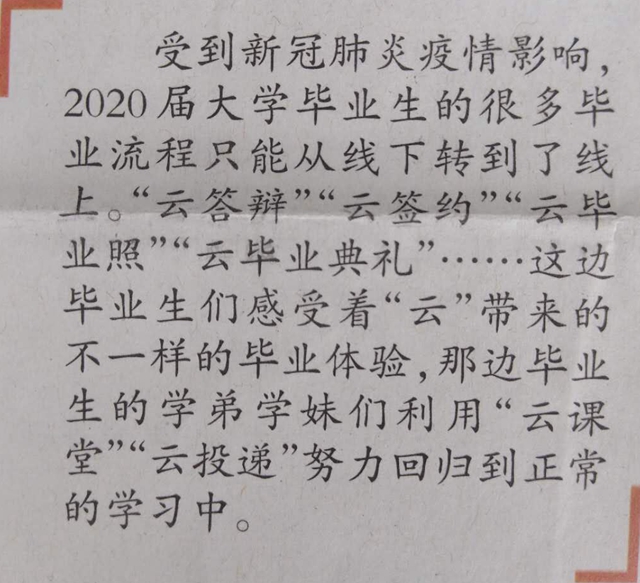 受到新冠肺炎疫情影响，
2020届大学毕业生的很多毕
业流程只能从线下转到了线
上。“云答辩”“云签约”“云毕
业照”“云毕业典礼”……这边
毕业生们感受着“云”带来的
不一样的毕业体验，那边毕业
生的学弟学妹们利用“云课
堂”“云投递”努力回归到正常
的学习中。